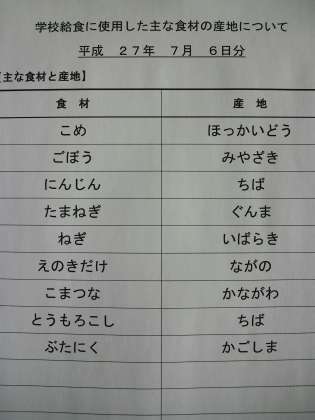 学校給食に使用した主な食材の産地について
平成 27年 7月 6日分
【主な食材と産地】
食材 産地
こめ ほっかいどう
ごぼう みやざき
にんじん ちば
たまねぎ ぐんま
ねぎ いばらき
えのきだけ ながの
こまつな かながわ
とうもろこし ちば
ぶたにく かごしま